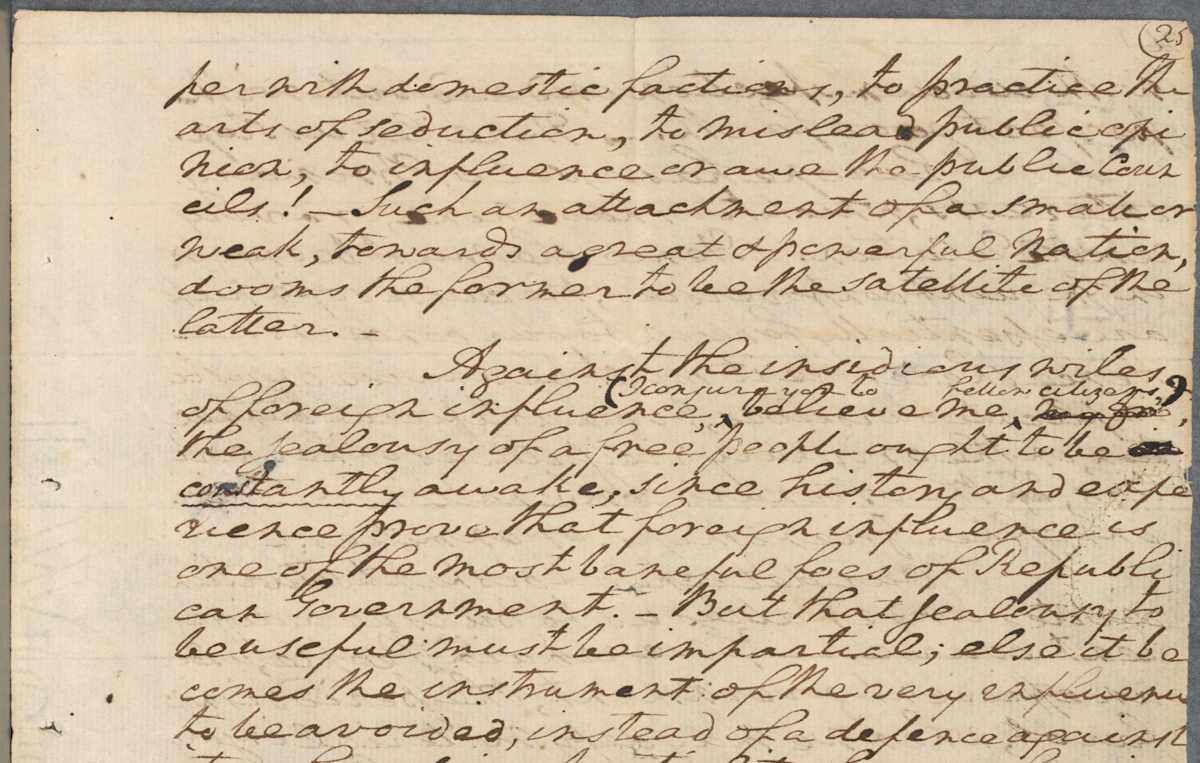 (25
per with domestic factions, to practice the
arts of seduction, to mislead public opi
nion, to influence or awe the public Coun
cils! – Such an attachment of a small or
weak, towards a great & powerful Nation,
dooms the former to be the satellite of the
latter. –
Against the insidious wiles
(I conjure you to fellow citizens,)
of foreign influence, believe me,
the jealousy of a free people ought to be
constantly awake, since history and expe
rience prove that foreign influence is
one of the most baneful foes of Republi
can Government. – But that jealousy to
be useful must be impartial; else it be
comes the instrument of the very influence
to be avoided, instead of a defence against